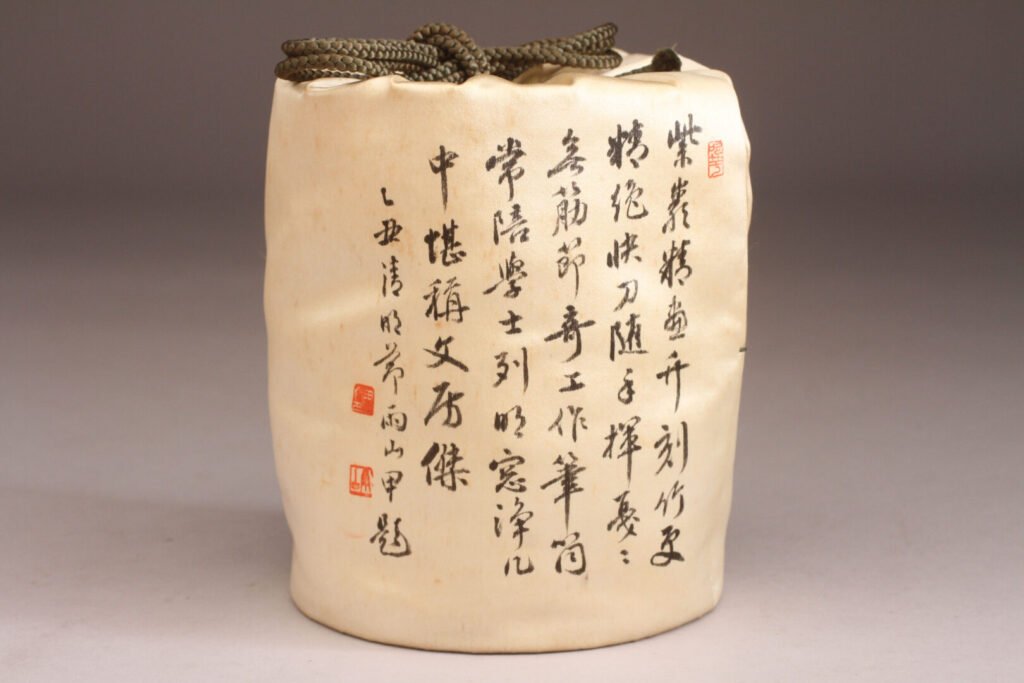 紫巖精画并刻竹更
精絶快刀随手揮戞〻
無筋節奇工作筆筒
常陪學士列明窓浄几
中堪稱文房傑
乙丑清明節雨山甲題